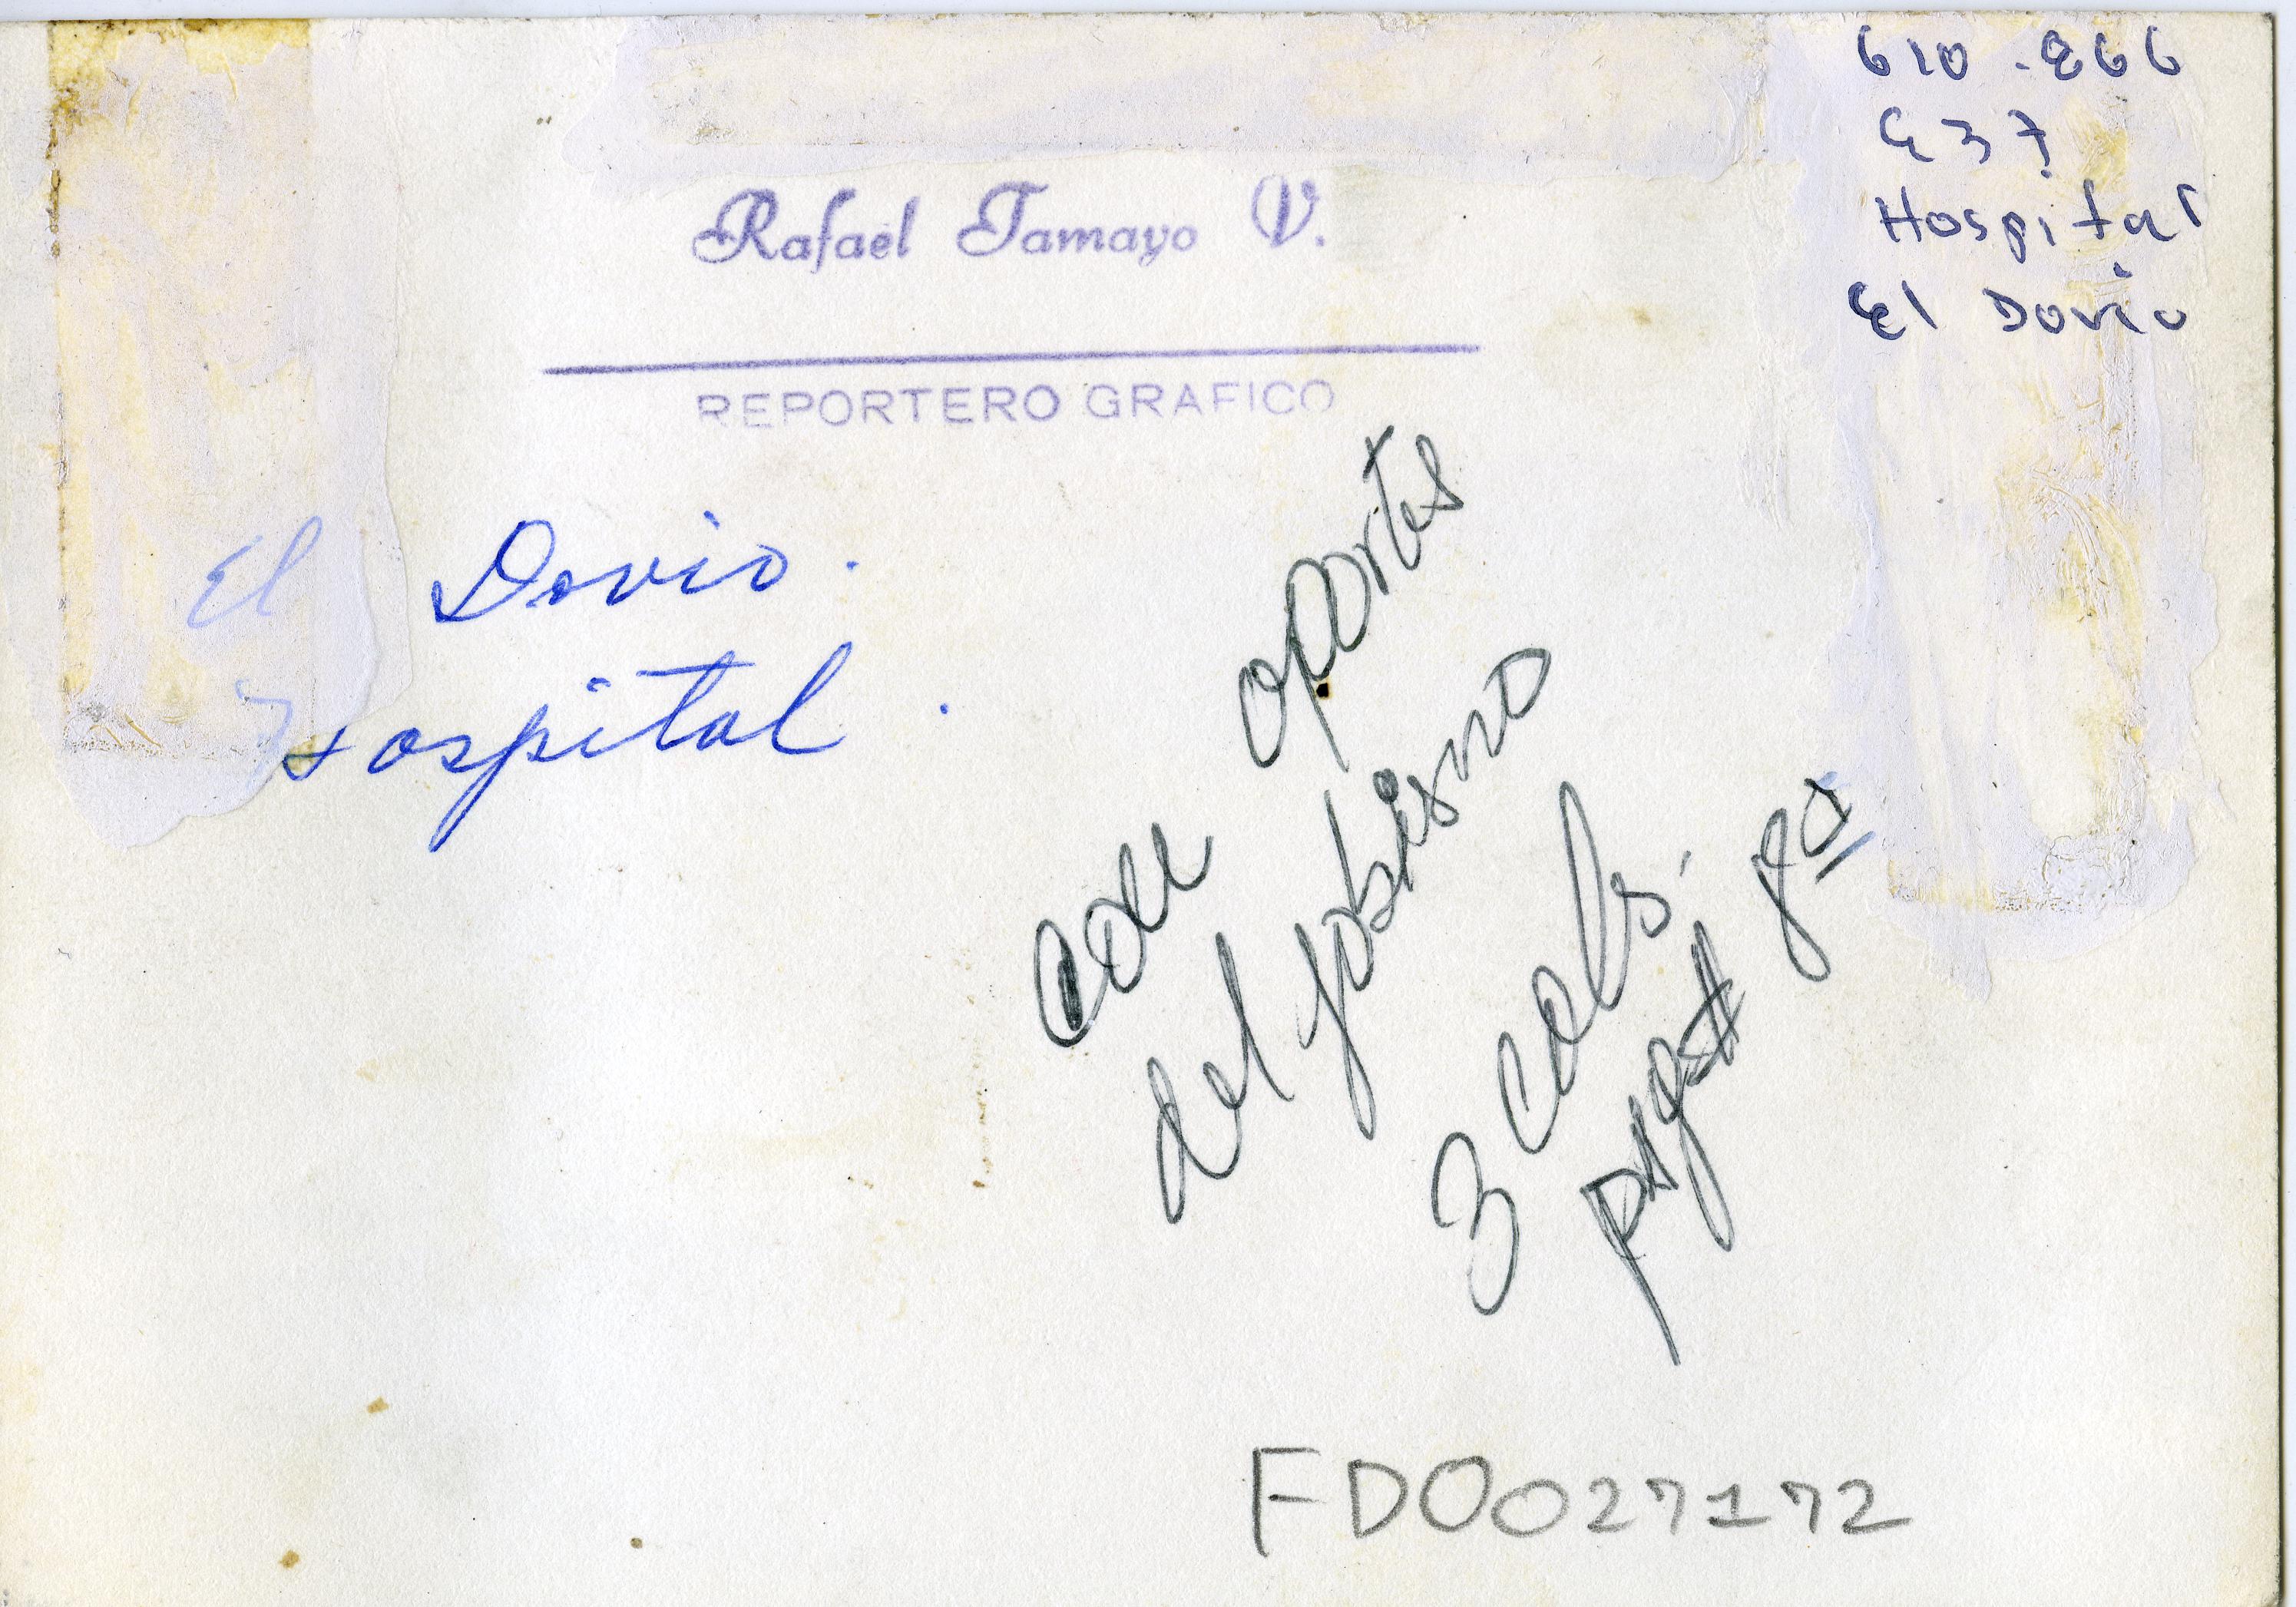 610 -866
E37
Hospital
El Dovio
Rafael Tamayo V.
REPORTERO GRAFICO
El Dovio.
Hospital.
con aportes
del gobierno
3 cols.
8a
FD0027172